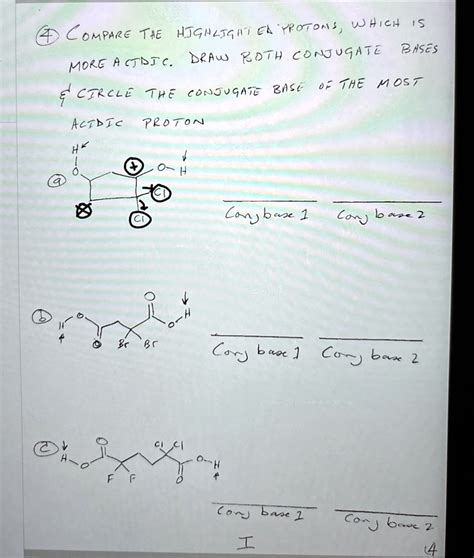 ④ COMPARE THE HIGHLIGHTED PROTONS, WHICH IS
MORE ACIDIC. DRAW BOTH CONJUGATE BASES
& CIRCLE THE CONJUGATE BASE OF THE MOST
ACIDIC PROTON
H
O
+
O-H
ⓐ
Cl
Cl
Conj base 1 Conj base 2
ⓑ
O
H
H
O
O
O
Br Br
Conj base 1 Conj base 2
ⓒ
H-O
O
Cl Cl
O-H
F F
O
Conj base 1 Conj base 2
I
4